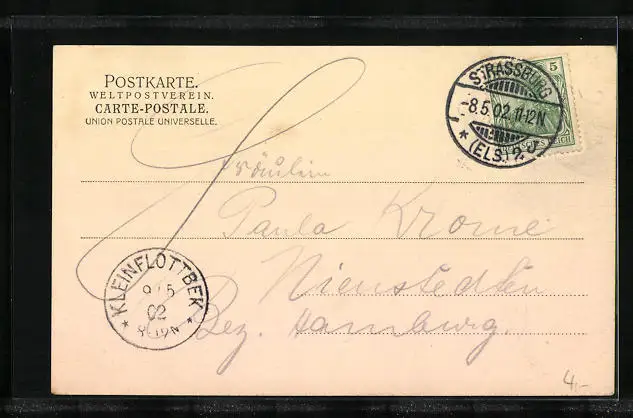 POSTKARTE.
WELTPOSTVEREIN.
CARTE-POSTALE.
UNION POSTALE UNIVERSELLE.
STRASSBURG
-8.5.02.11-12N
* (ELS.) 2
5
Fräulein
Paula Krome
Nienstedten
Bez. Hamburg.
* KLEINFLOTTBEK *
9/5
02
4,-